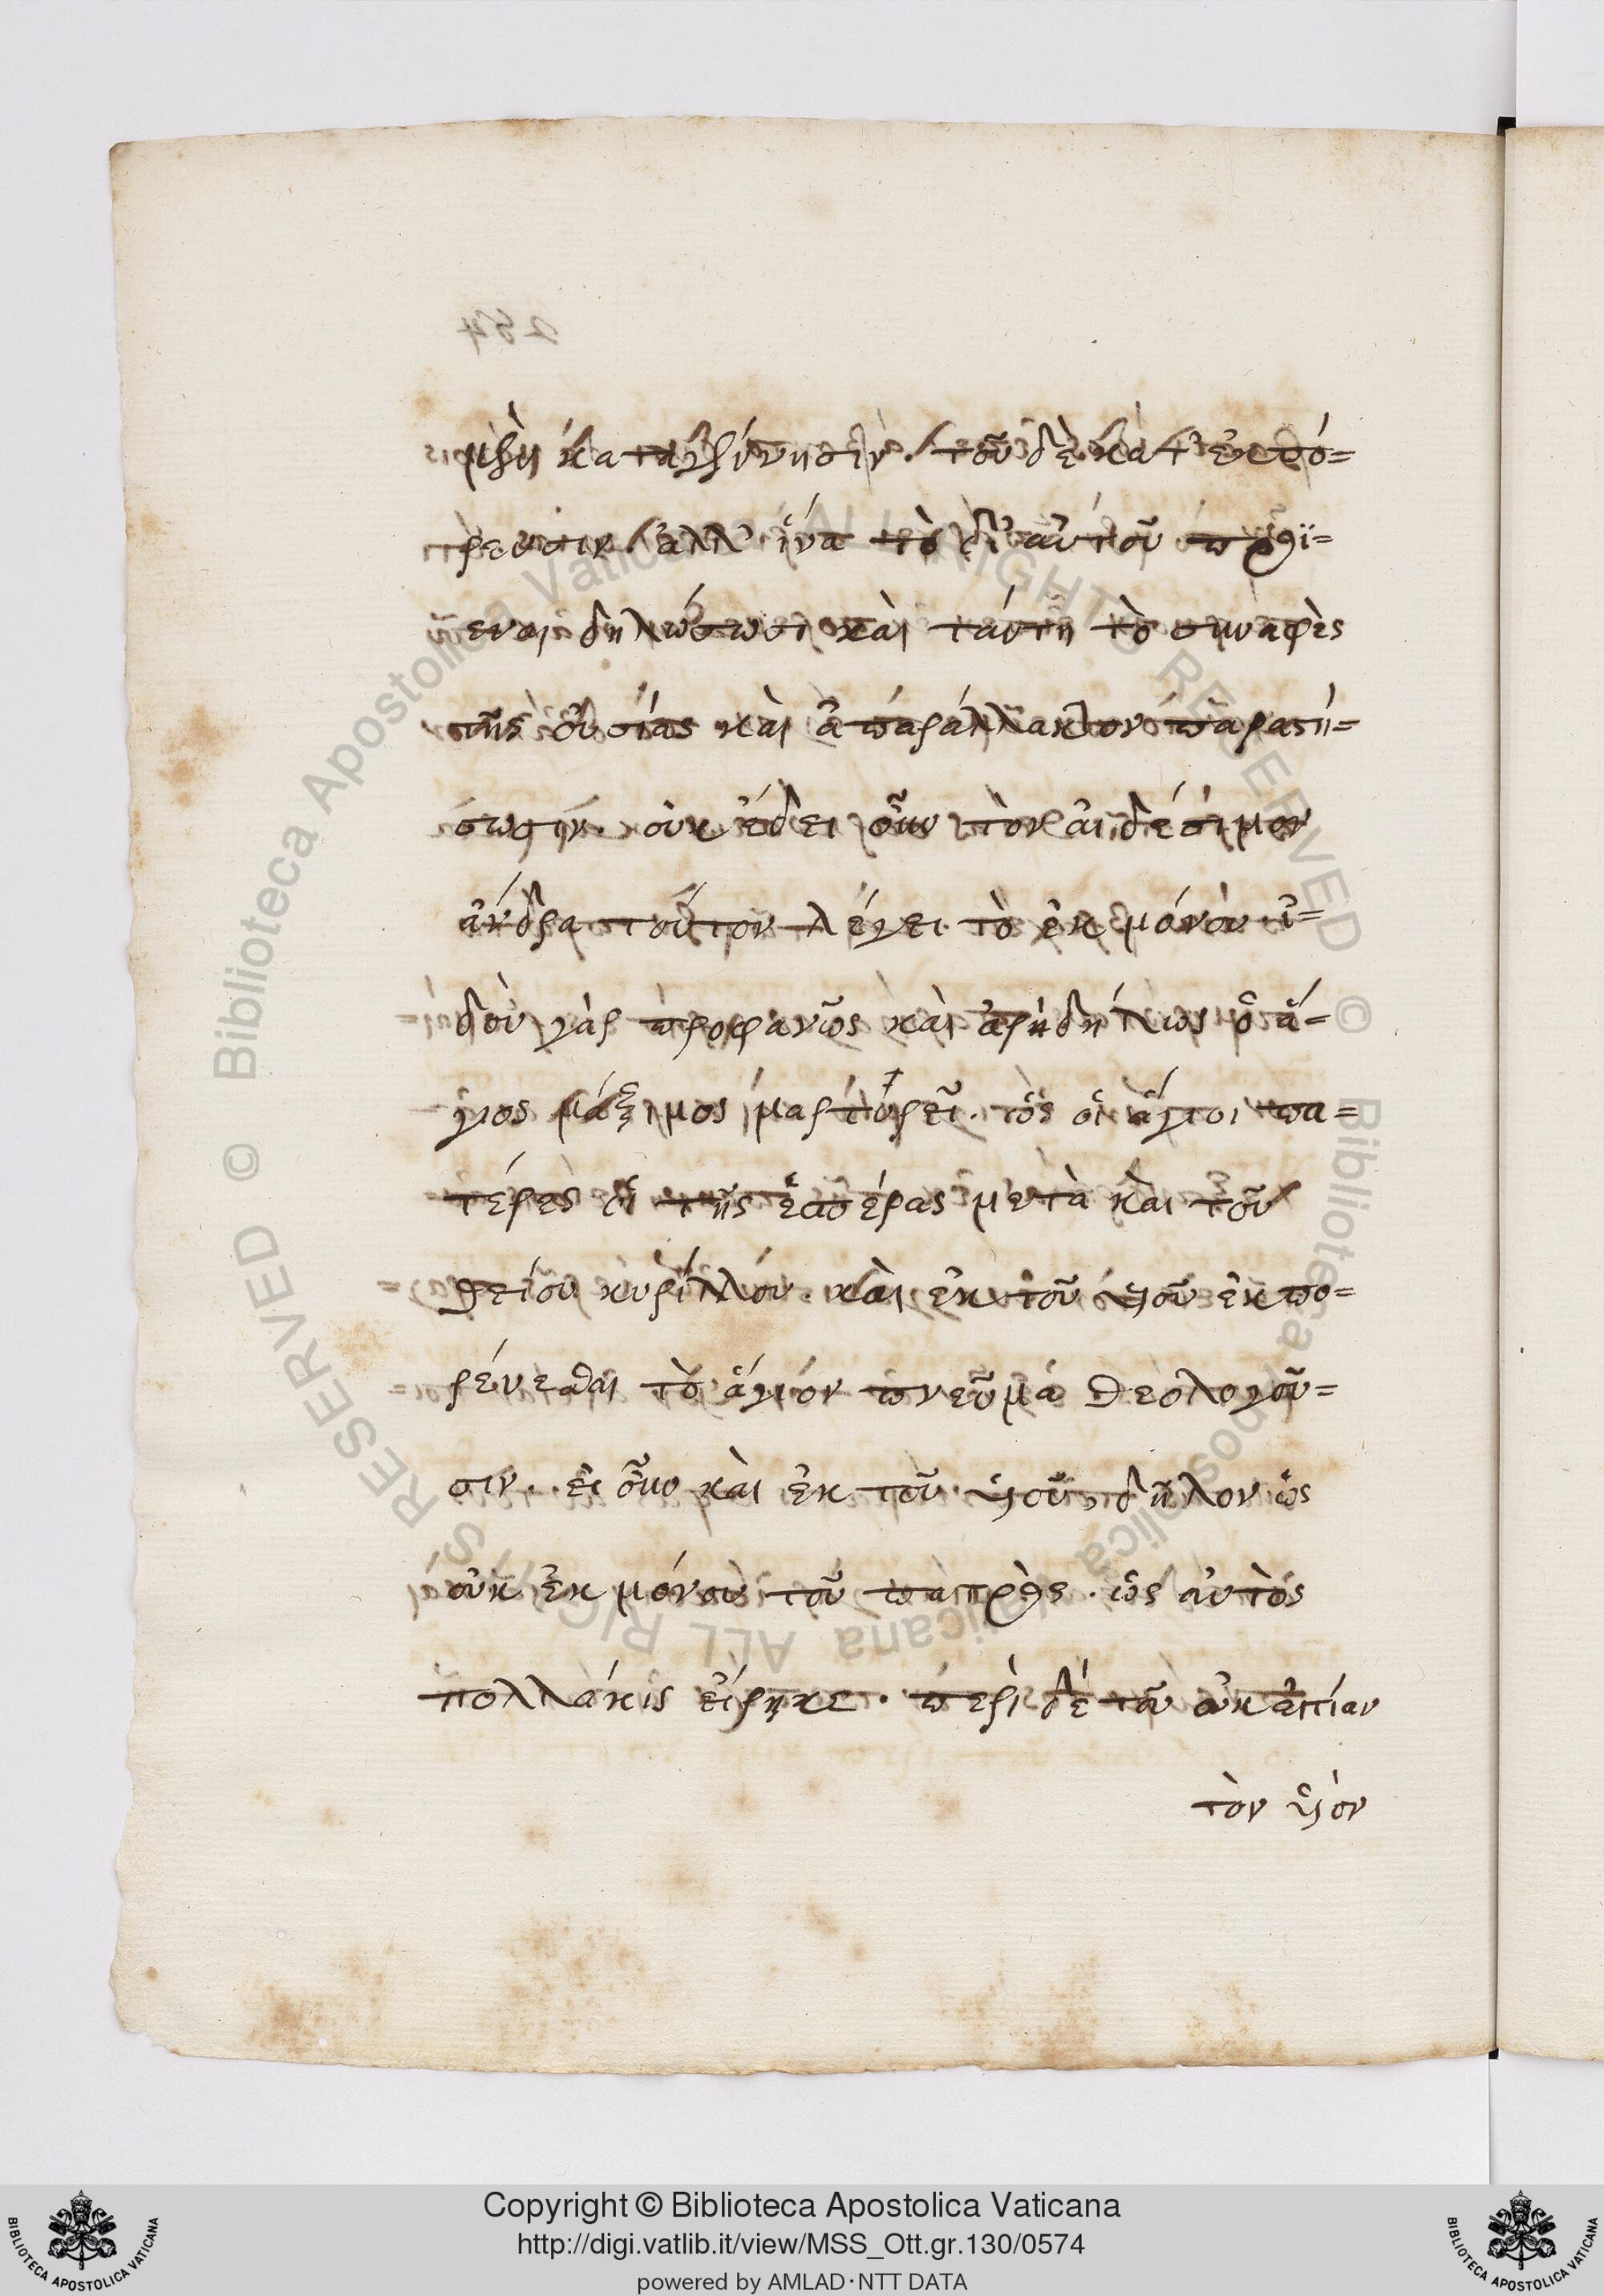 μὲν κατὰ γέννησιν. τοῦ δὲ κατ' ἐκπό=
ρευσιν. ἀλλ' ἵνα τὸ δι' αὐτοῦ προϊ=
έναι δηλώσωσι καὶ ταύτη τὸ συναφὲς
τῆς οὐσίας καὶ ἀπαράλλακτον παραστή=
σωσιν. οὐκ ἔδει οὖν τὸν αἰδέσιμον
ἄνδρα τοῦτον λέγει τὸ ἐκ μόνου ἰ=
δοὺ γὰρ προφανῶς καὶ ἀριδήλως ὁ ἅ=
γιος μάξιμος μαρτυρεῖ. ὡς οἱ ἅγιοι πα=
τέρες οἱ τῆς ἑσπέρας μετὰ καὶ τοῦ
θείου κυρίλλου. καὶ ἐκ τοῦ ὑιοῦ ἐκπο=
ρεύεσθαι τὸ ἅγιον πνεῦμα θεολογοῦ=
σιν. εἰ οὖν καὶ ἐκ τοῦ ὑιοῦ, δῆλον ὡς
οὐκ ἐκ μόνου τοῦ πατρὸς. ὡς αὐτὸς
πολλάκις εἴρηκε. περὶ δὲ τοῦ οὐκ αἰτίαν
τὸν ὑιὸν
254
Copyright © Biblioteca Apostolica Vaticana
http://digi.vatlib.it/view/MSS_Ott.gr.130/0574
powered by AMLAD·NTT DATA
BIBLIOTECA APOSTOLICA VATICANA
BIBLIOTECA APOSTOLICA VATICANA
© Biblioteca Apostolica Vaticana ALL RIGHTS RESERVED
© Biblioteca Apostolica Vaticana ALL RIGHTS RESERVED